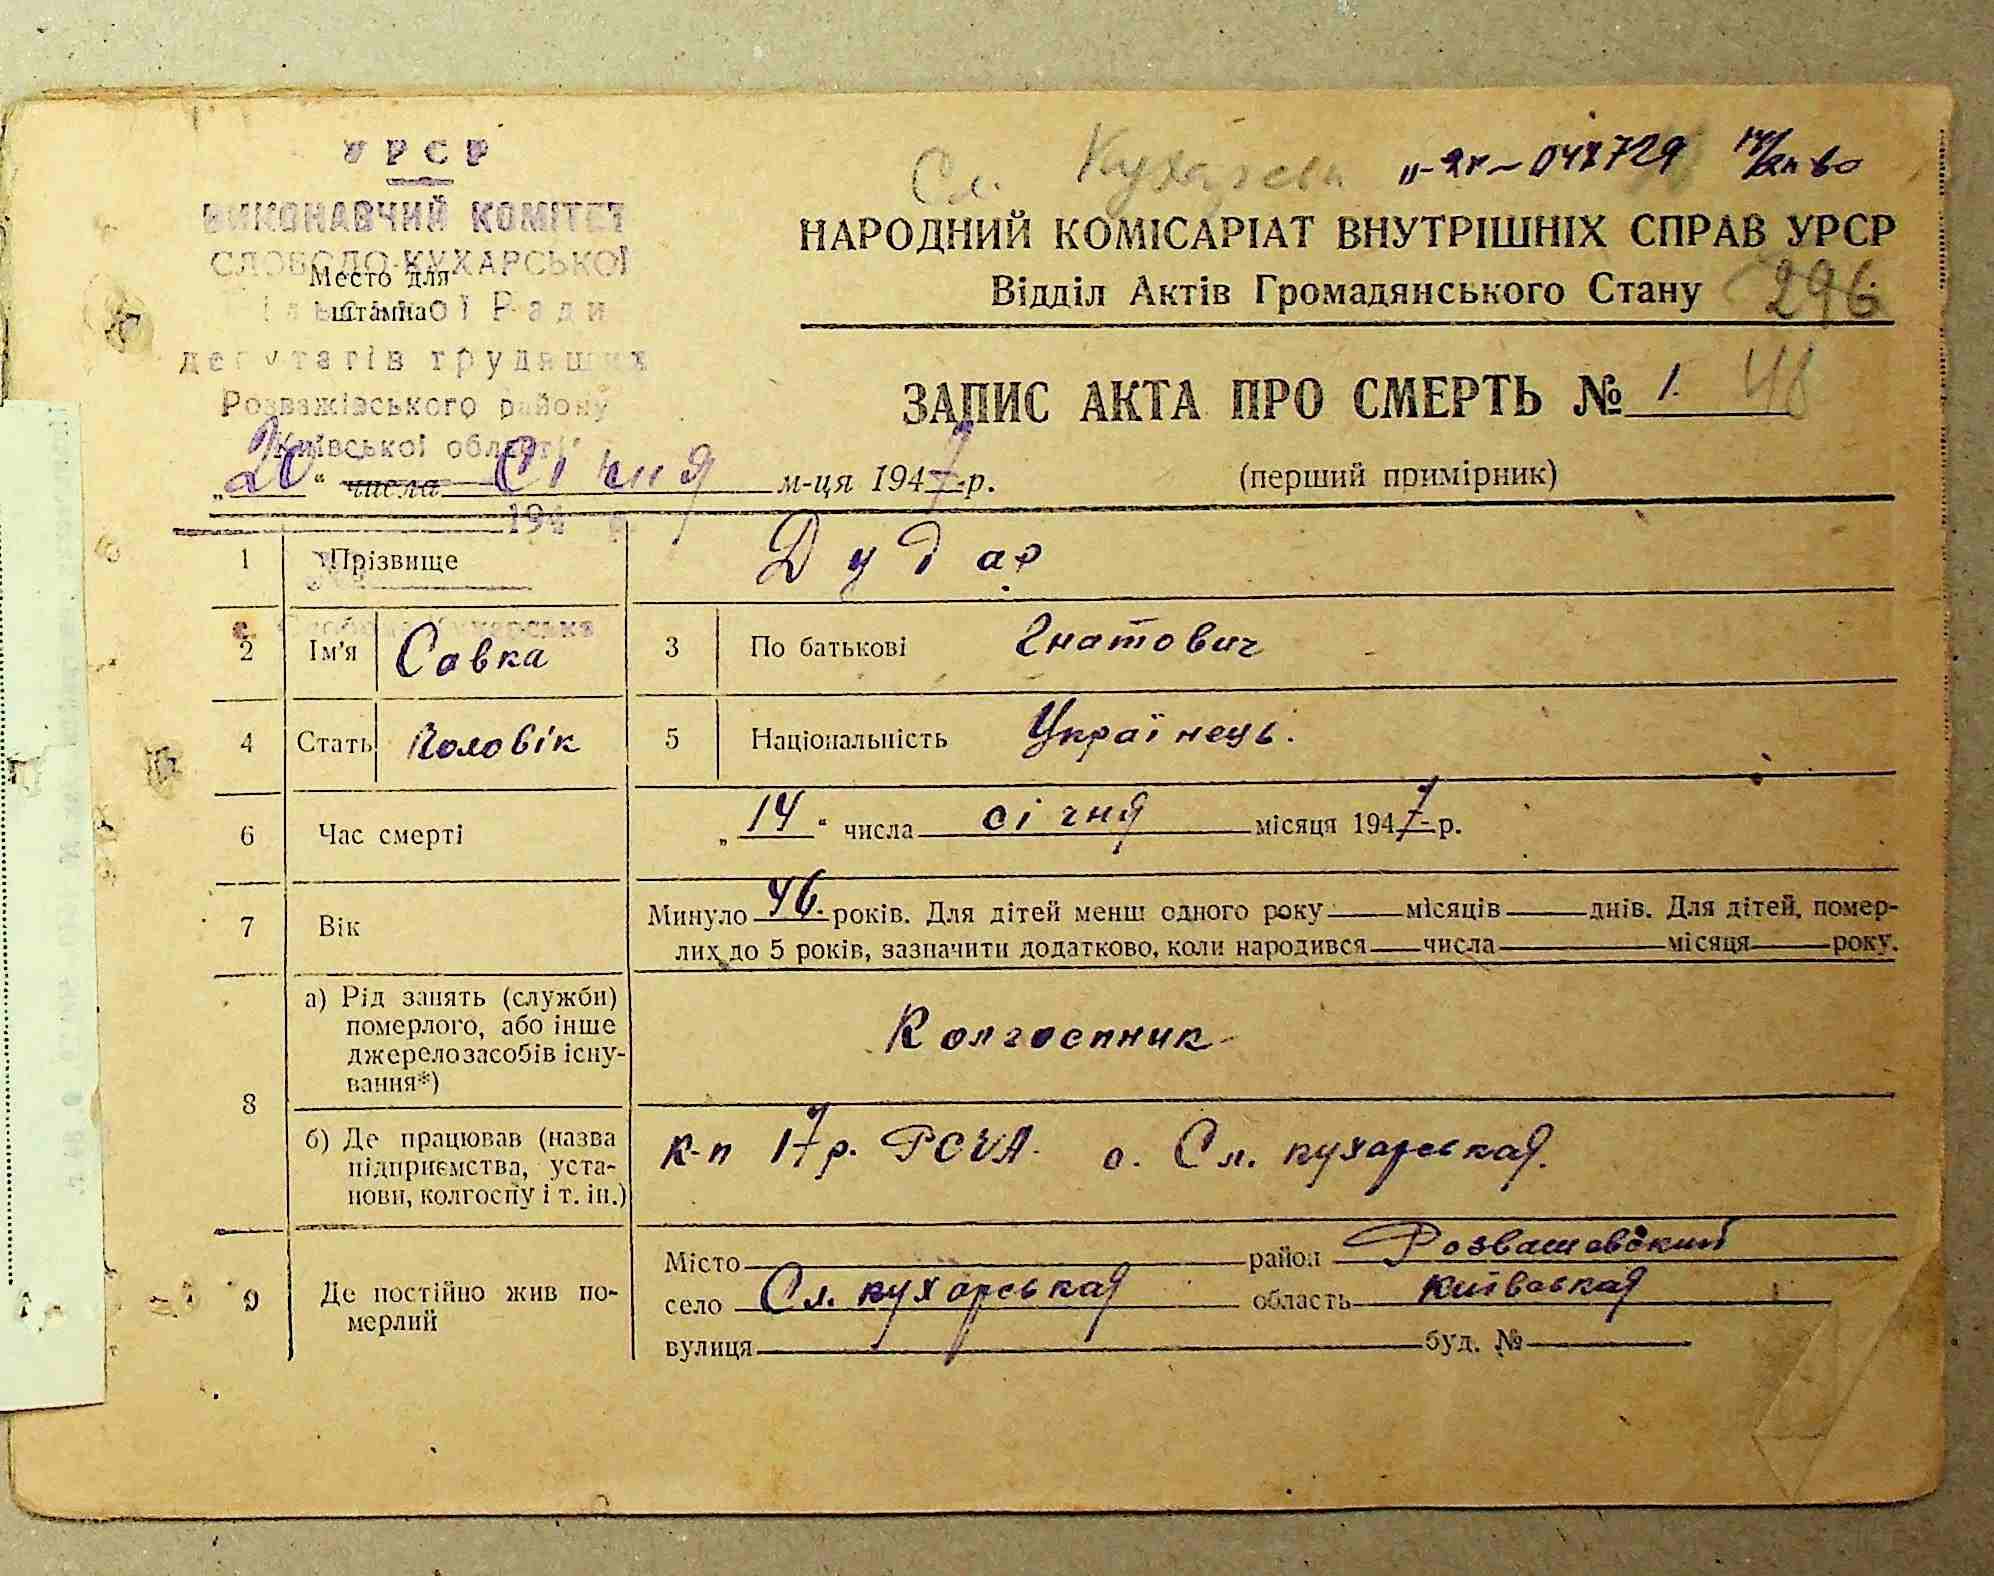 УРСР
ВИКОНАВЧИЙ КОМІТЕТ
СЛОБОДО-КУХАРСЬКОЇ
Место для
штампа
Ради
депутатів трудящих
Розважівського району
Київської області
Сл. Кухарськ
НАРОДНИЙ КОМІСАРІАТ ВНУТРІШНІХ СПРАВ УРСР
Відділ Актів Громадянського Стану 296
ЗАПИС АКТА ПРО СМЕРТЬ № 1. 48
„20“ числа Січня м-ця 1947-р.
(перший примірник)
194
1 Прізвище Дудар
с. Слобода Кухарська
2 Ім'я Савка 3 По батькові Гнатович
4 Стать Чоловік 5 Національність Українець.
6 Час смерті „14“ числа січня місяця 1947-р.
7 Вік Минуло 46. років. Для дітей менш одного року місяців днів. Для дітей, помер-
лих до 5 років, зазначити додатково, коли народився числа місяця року.
8 а) Рід занять (служби)
померлого, або інше
джерело засобів існу-
вання*)
Колгоспник
б) Де працював (назва
підприємства, уста-
нови, колгоспу і т. ін.)
к-п 17 р. РСЧА. с. Сл. кухарськая.
9 Де постійно жив по-
мерлий
Місто район Розважовский
село Сл. кухарськая область київськая
вулиця буд. №